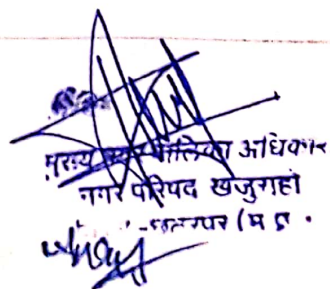 मुख्य नगर पालिका अधिकार
नगर परिषद खजुराहो
छतरपुर (म प्र.